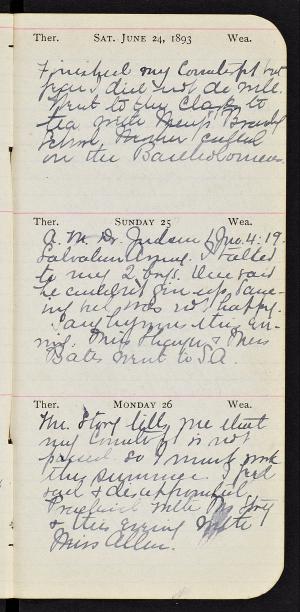 Ther. SAT. JUNE 24, 1893 Wea.
Finished my Counterpt but
fear I did not do well.
Went to the Clark to
tea with
School. Mother called
on the Bartholomews.
Ther. SUNDAY 25 Wea.
A.M. Dr. Judson 1 Jno. 4:19.
Salvation Army. I talked
to my 2 boys. One said
he couldn't give up danc-
ing but was not happy.
Sang hymns the eve-
ng. Miss Thayer & Miss
Bates went to S.A.
Ther. MONDAY 26 Wea.
Mr. Story tells me that
my Counterpt is not
passed so I must work
this summer. I feel
sad & disappointed.
Practiced with Mr. Story
& this evening with
Miss Allen.